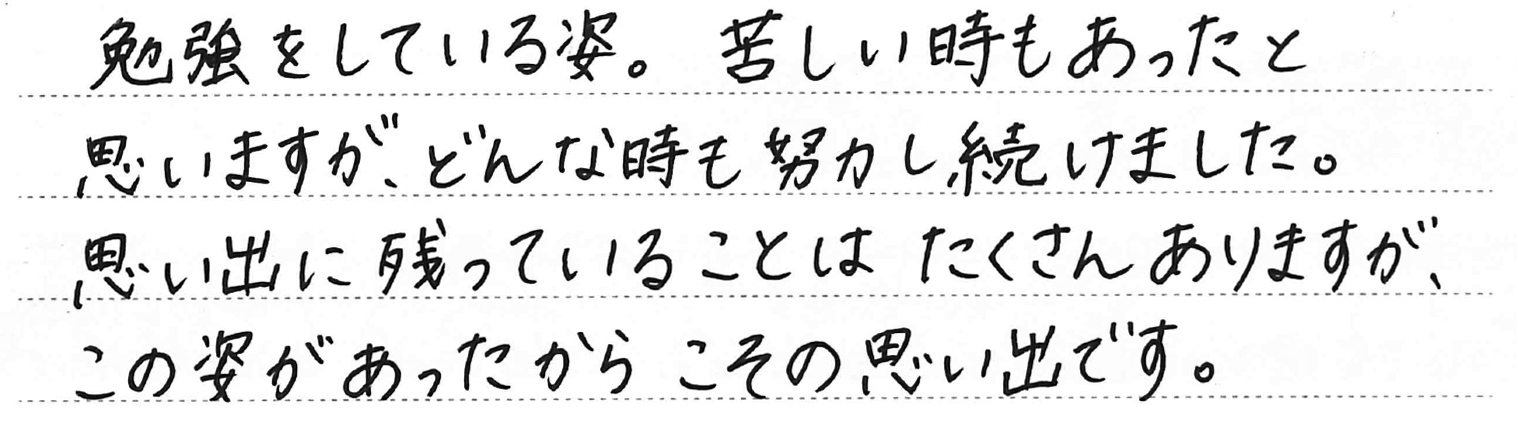 勉強をしている姿。苦しい時もあったと
思いますが、どんな時も努力し続けました。
思い出に残っていることはたくさんありますが、
この姿があったからこその思い出です。